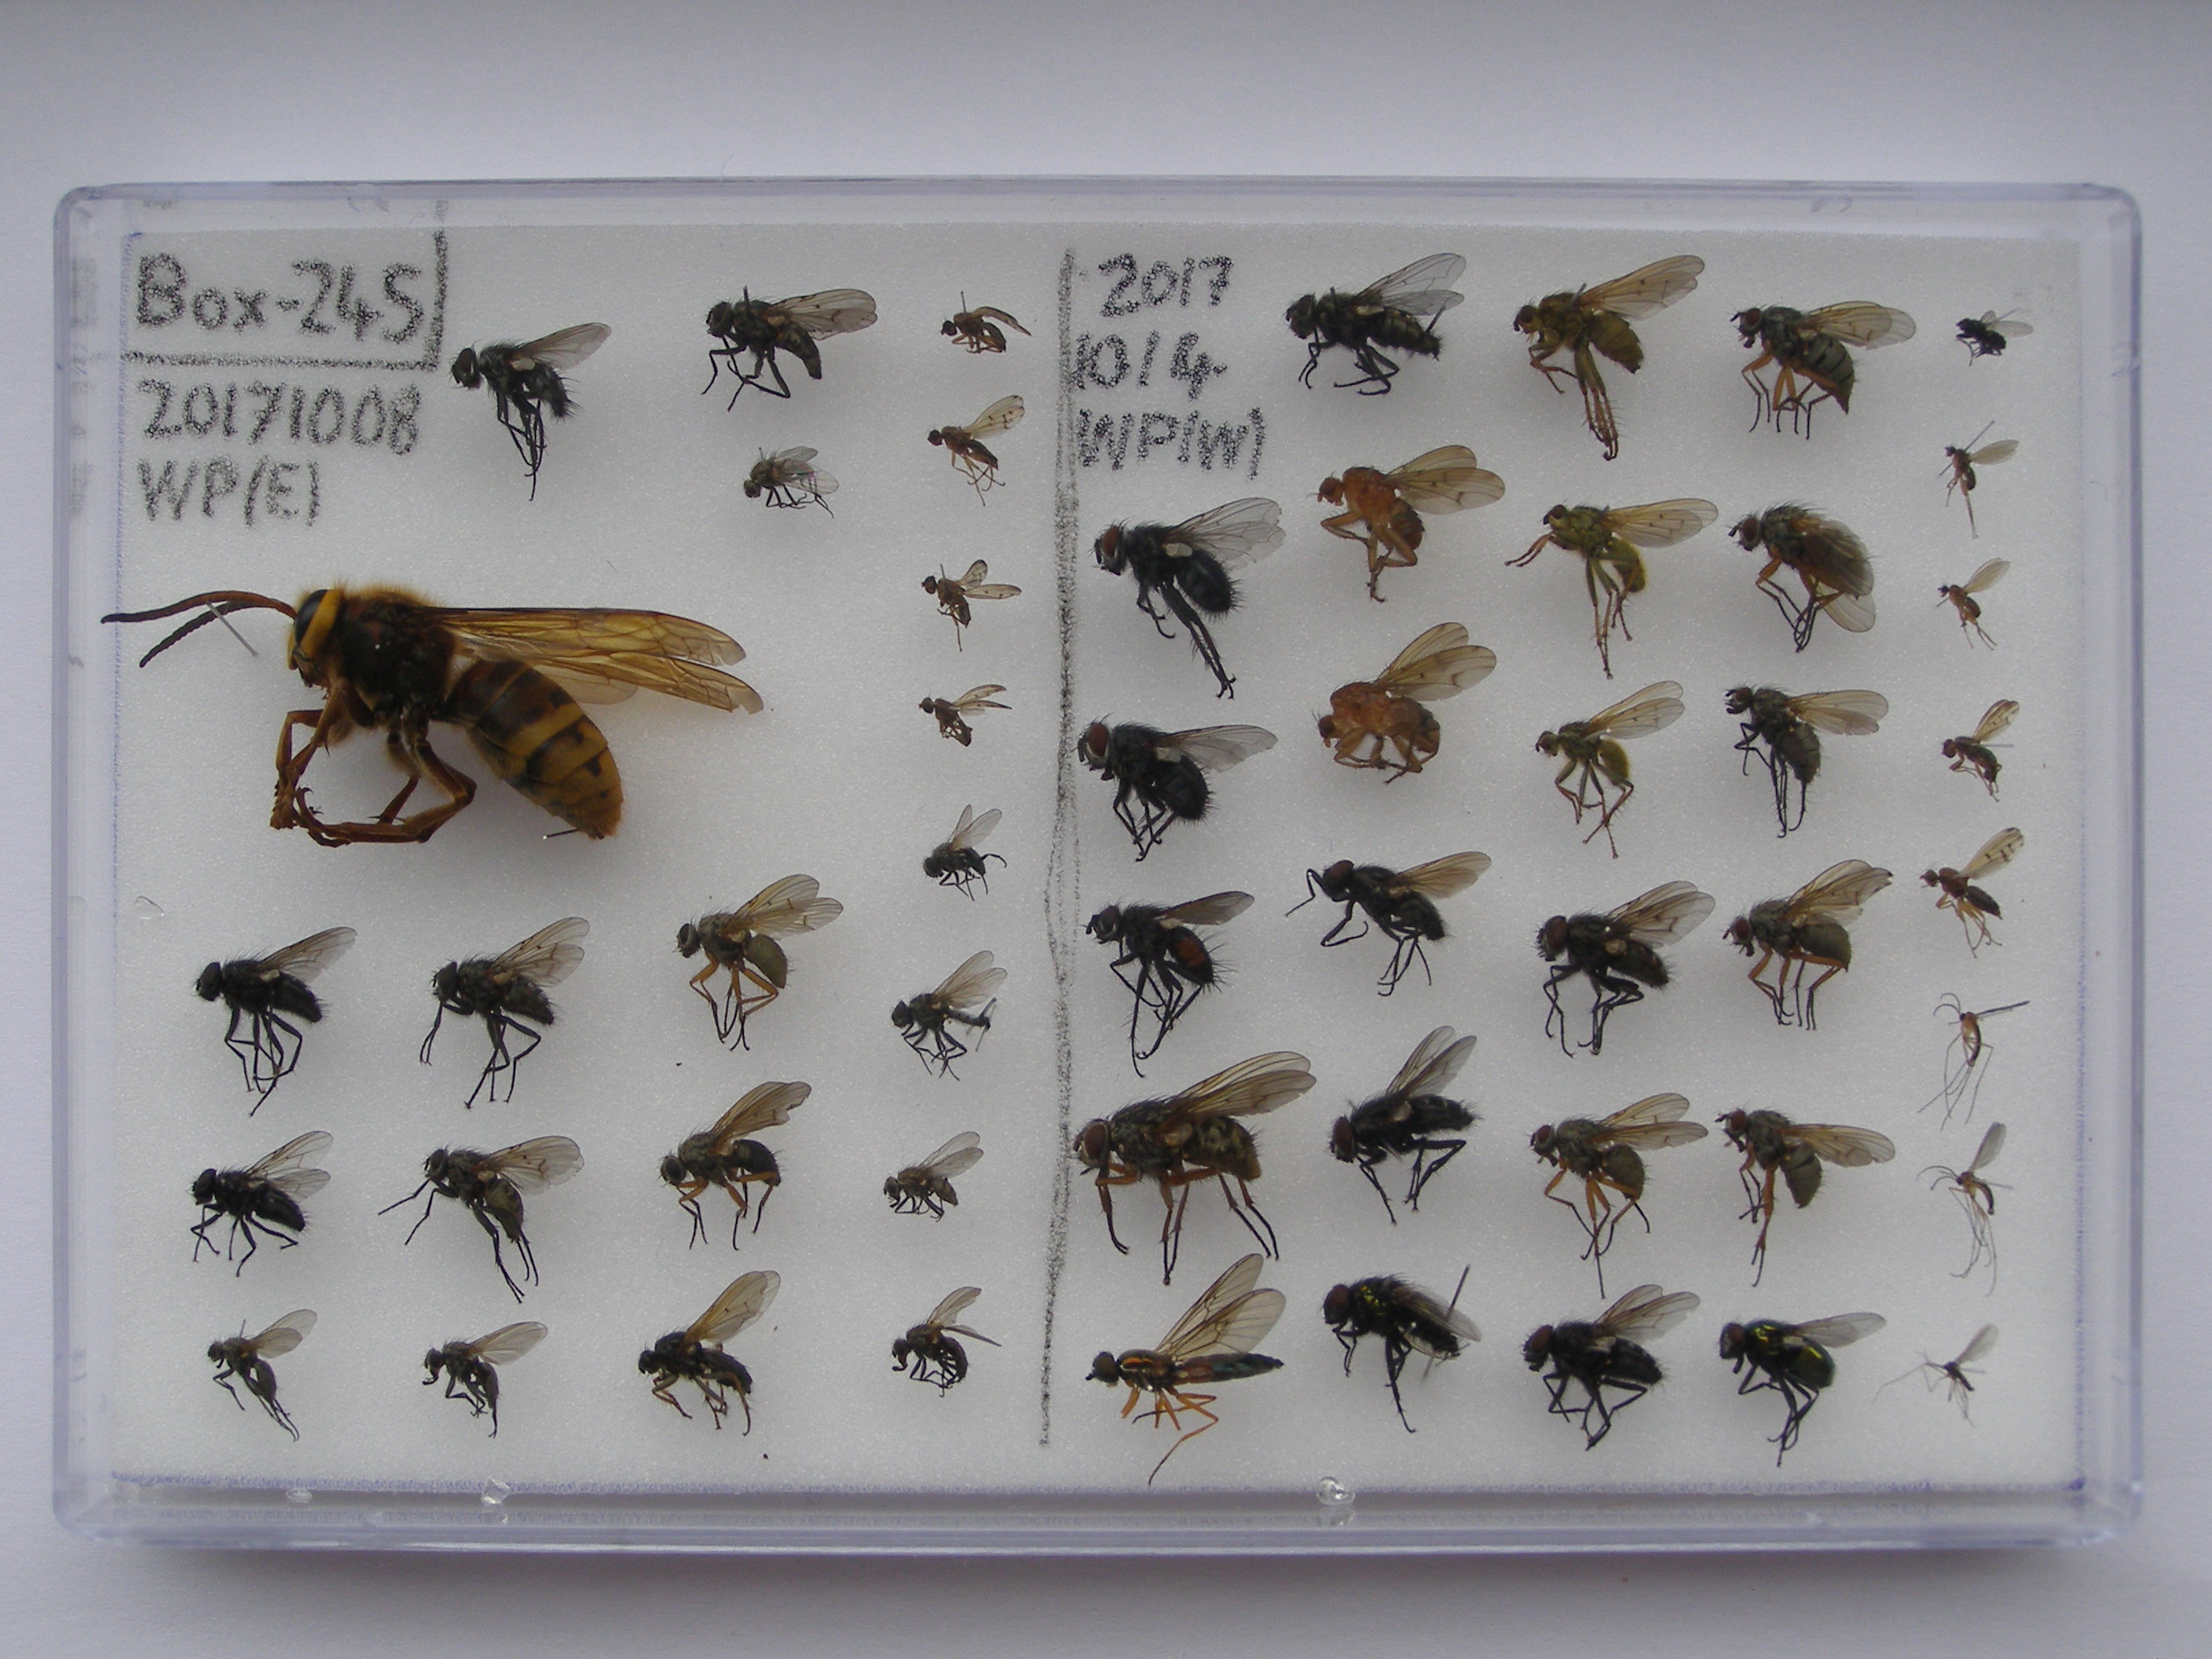 Box-245
20171008
WP(E)
2017
10/4
WP(W)